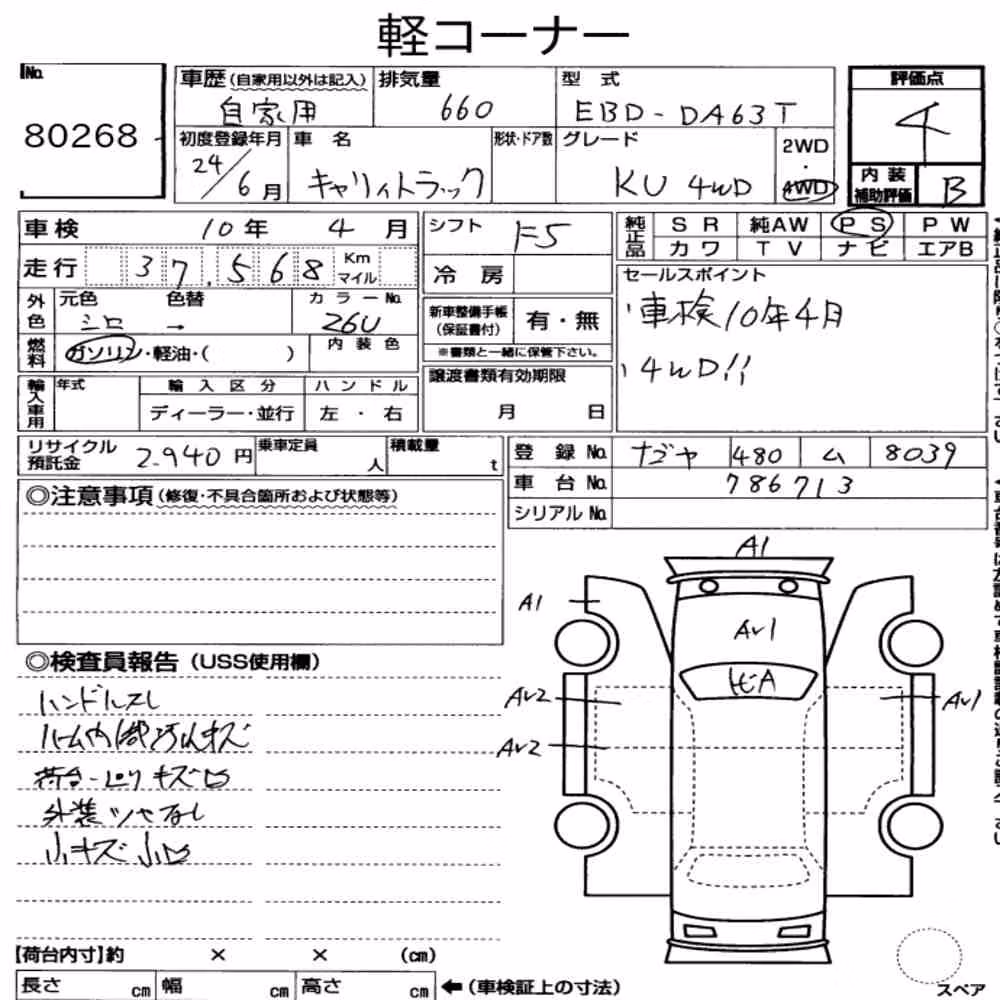 軽コーナー
No. 80268
車歴(自家用以外は記入) 自家用
排気量 660
型式 EBD-DA63T
評価点 4
初度登録年月 24/6月
車名 キャリィトラック
形状・ドア数
グレード KU 4WD
2WD・4WD
内装補助評価 B
車検 10年 4月
シフト F5
純正品 SR 純AW PS PW
カワ TV ナビ エアB
走行 37,568 Km マイル
冷房
セールスポイント
・車検10年4月
・4WD!!
外色 元色 シロ 色替 → カラーNo. 26U
新車整備手帳(保証書付) 有・無
※書類と一緒に保管下さい。
燃料 ガソリン・軽油・( ) 内装色
輸入車用 年式 輸入区分 ハンドル
ディーラー・並行 左・右
譲渡書類有効期限
月 日
リサイクル預託金 2,940円
乗車定員 人
積載量 t
登録No. ナゴヤ 480 ム 8039
車台No. 786713
シリアルNo.
◎注意事項(修復・不具合箇所および状態等)
◎検査員報告(USS使用欄)
ハンドルスレ
ルーム内 汚レキズ
荷台 キズ凹
外装ツヤなし
小キズ小凹
A1
A1
AU1
ヒA
AU2
AU1
AU2
【荷台内寸】約 × × (cm)
長さ cm 幅 cm 高さ cm ←(車検証上の寸法)
スペア